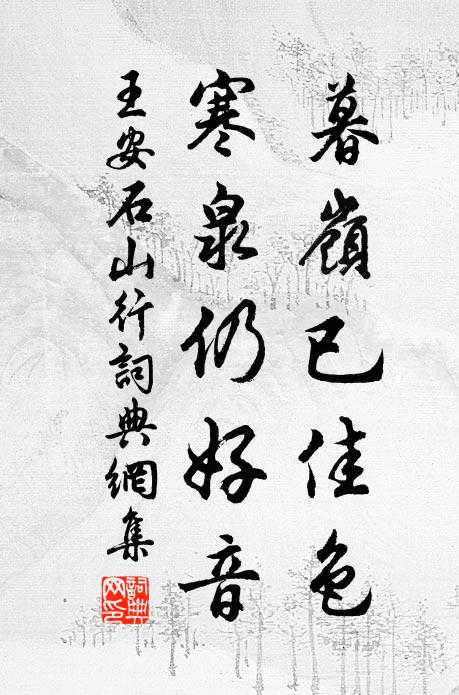 暮嶺已佳色
寒泉仍好音
王安石山行詞典網集
詞典網印